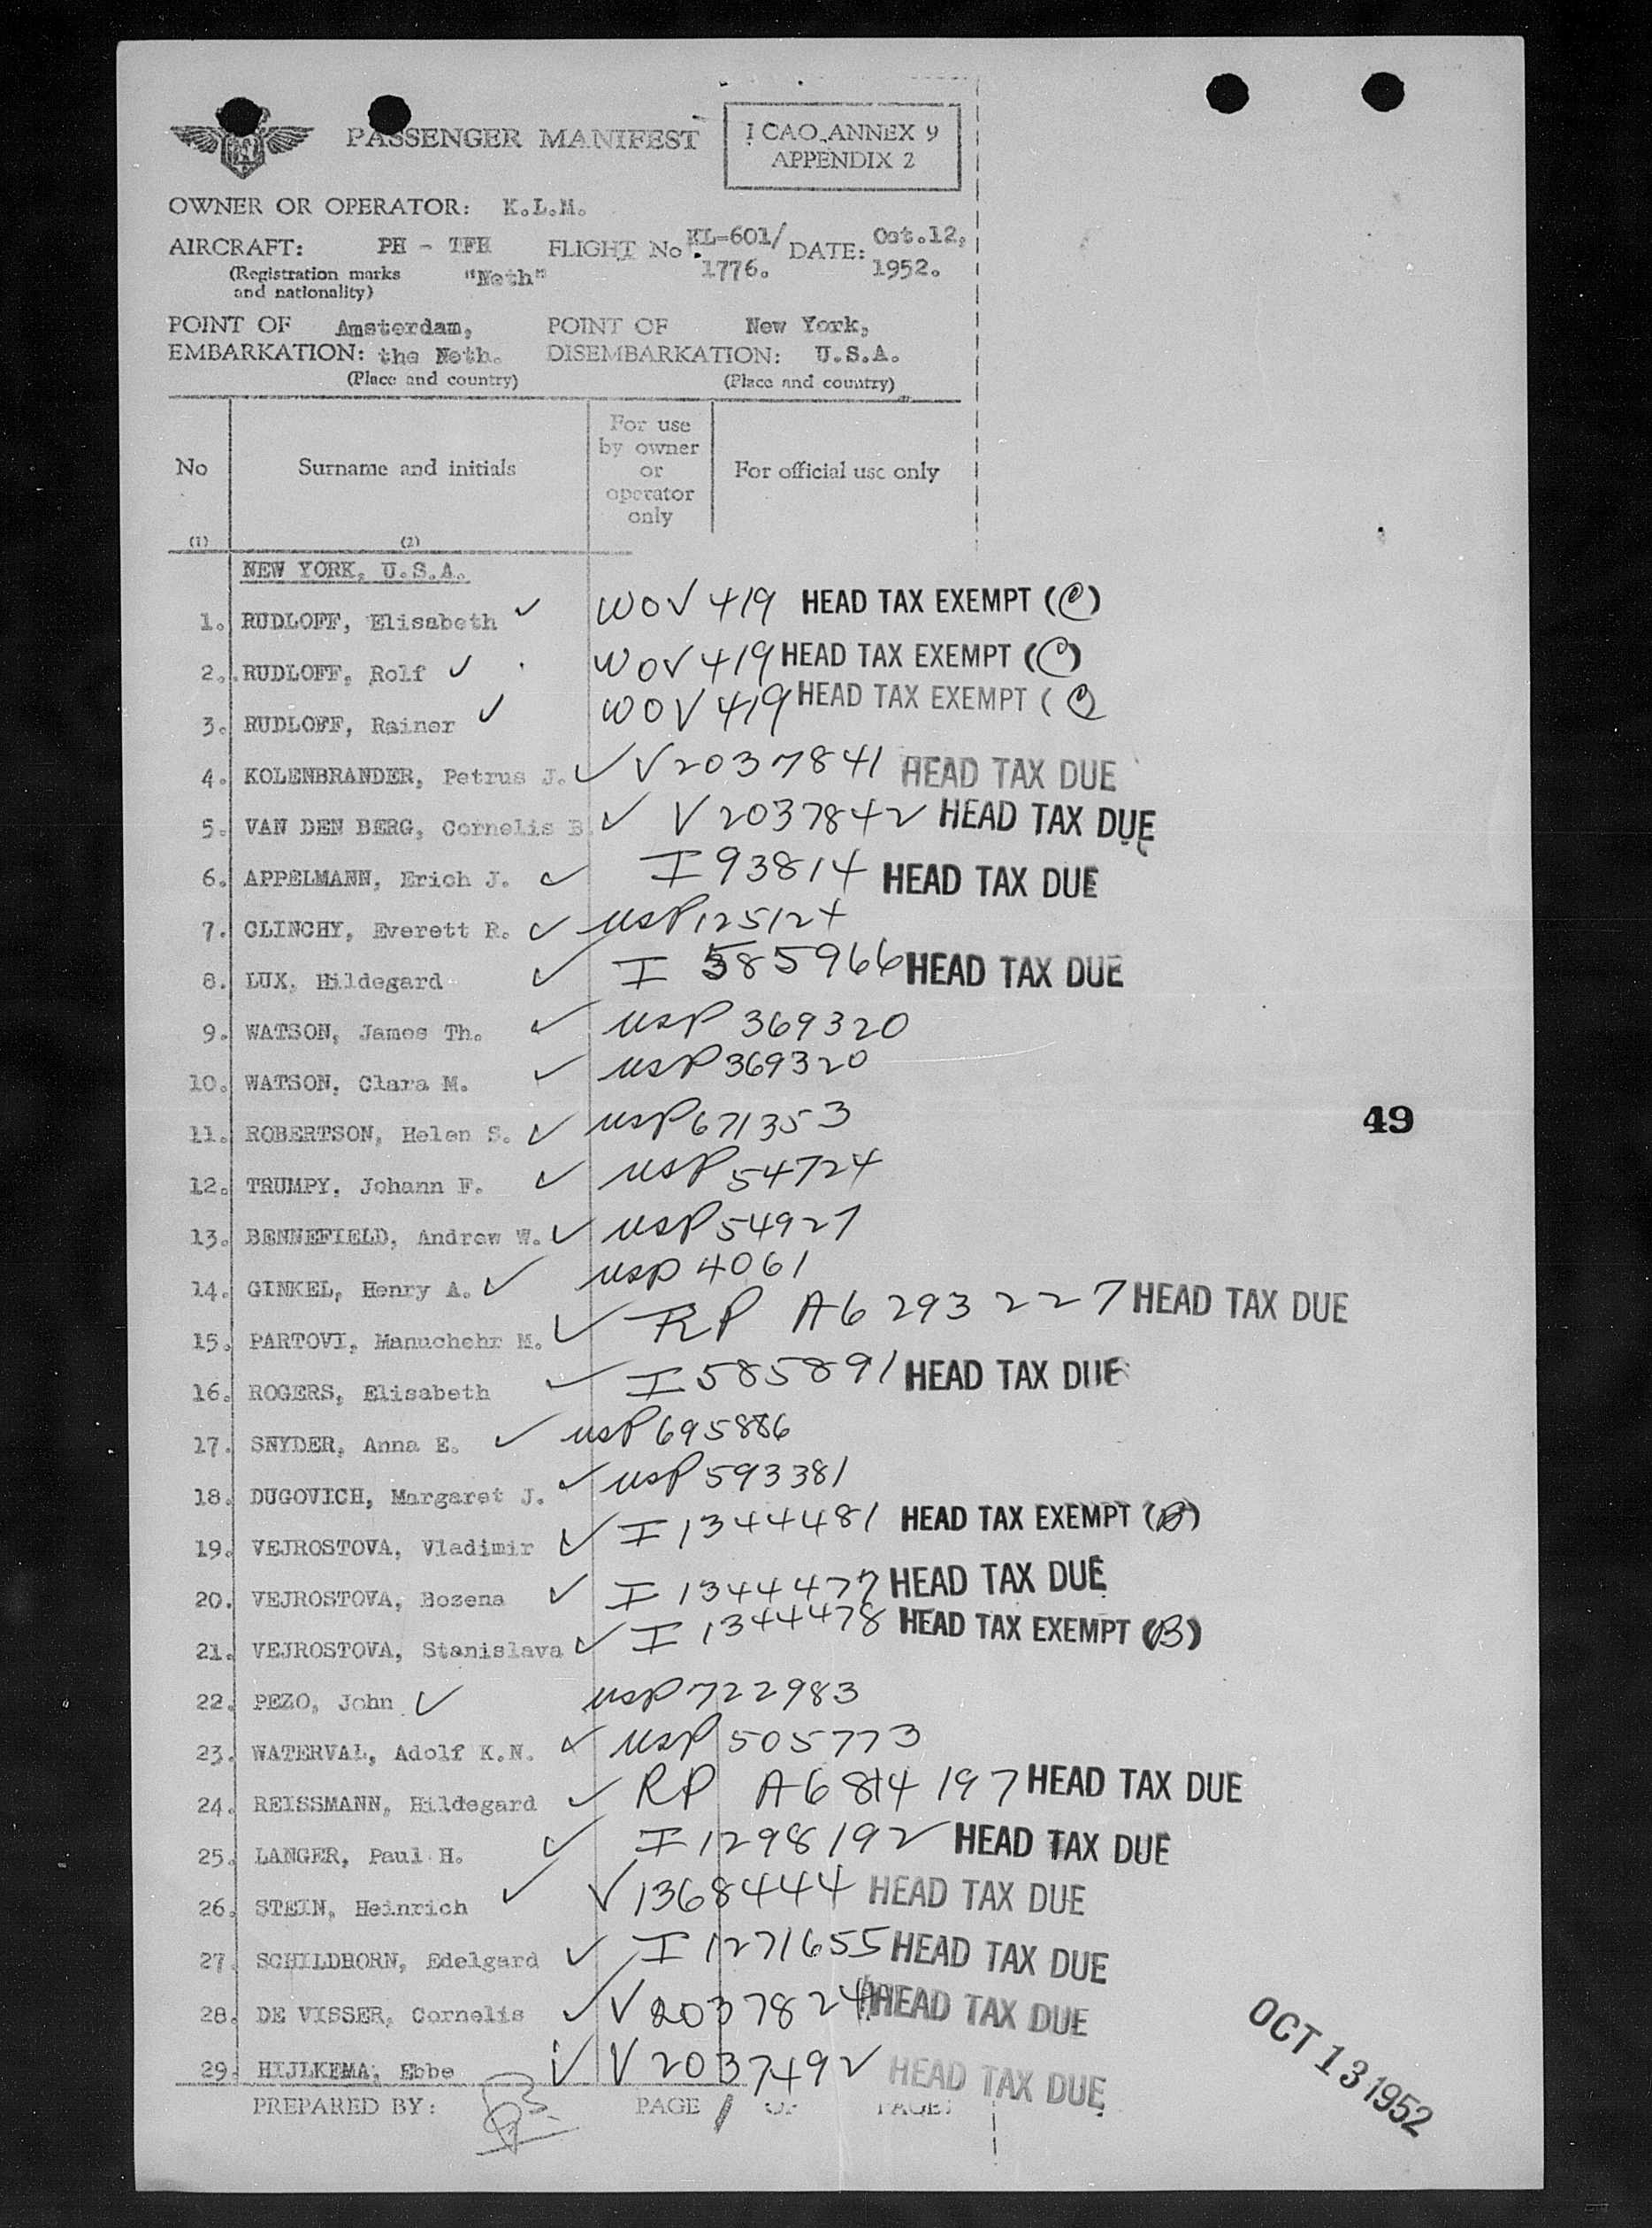 PASSENGER MANIFEST
I CAO ANNEX 9
APPENDIX 2
OWNER OR OPERATOR: K.L.M.
AIRCRAFT: PH - TFH FLIGHT No. KL-601/ DATE: Oct.12,
(Registration marks "Neth" 1776. 1952.
and nationality)
POINT OF Amsterdam, POINT OF New York,
EMBARKATION: the Neth. DISEMBARKATION: U.S.A.
(Place and country) (Place and country)
No Surname and initials For use by owner or operator only For official use only
(1) (2)
NEW YORK, U.S.A.
1. RUDLOFF, Elisabeth ✓ WOV 419 HEAD TAX EXEMPT (C)
2. RUDLOFF, Rolf ✓ WOV 419 HEAD TAX EXEMPT (C)
3. RUDLOFF, Rainer ✓ WOV 419 HEAD TAX EXEMPT (C)
4. KOLENBRANDER, Petrus J. ✓ V2037841 HEAD TAX DUE
5. VAN DEN BERG, Cornelis B. ✓ V2037842 HEAD TAX DUE
6. APPELMANN, Erich J. ✓ I 93814 HEAD TAX DUE
7. CLINCHY, Everett R. ✓ USP 125124
8. LUX, Hildegard ✓ I 585966 HEAD TAX DUE
9. WATSON, James Th. ✓ USP 369320
10. WATSON, Clara M. ✓ USP 369320
49
11. ROBERTSON, Helen S. ✓ USP 671353
12. TRUMPY, Johann F. ✓ USP 54724
13. BENNEFIELD, Andrew W. ✓ USP 54927
14. GINKEL, Henry A. ✓ USP 4061
15. PARTOVI, Manuchehr M. ✓ RP A6293227 HEAD TAX DUE
16. ROGERS, Elisabeth ✓ I 585891 HEAD TAX DUE
17. SNYDER, Anna E. ✓ USP 695886
18. DUGOVICH, Margaret J. ✓ USP 593381
19. VEJROSTOVA, Vladimir ✓ I 1344481 HEAD TAX EXEMPT (B)
20. VEJROSTOVA, Bozena ✓ I 1344477 HEAD TAX DUE
21. VEJROSTOVA, Stanislava ✓ I 1344478 HEAD TAX EXEMPT (B)
22. PEZO, John ✓ USP 722983
23. WATERVAL, Adolf K.N. ✓ USP 505773
24. REISSMANN, Hildegard ✓ RP A6814197 HEAD TAX DUE
25. LANGER, Paul H. ✓ I 1298192 HEAD TAX DUE
26. STEIN, Heinrich ✓ V1368444 HEAD TAX DUE
27. SCHILDBORN, Edelgard ✓ I 1271655 HEAD TAX DUE
28. DE VISSER, Cornelis ✓ V2037824 HEAD TAX DUE
29. HIJLKEMA, Ebbe ✓ V2037492 HEAD TAX DUE
OCT 13 1952
PREPARED BY: PAGE 1 OF PAGE